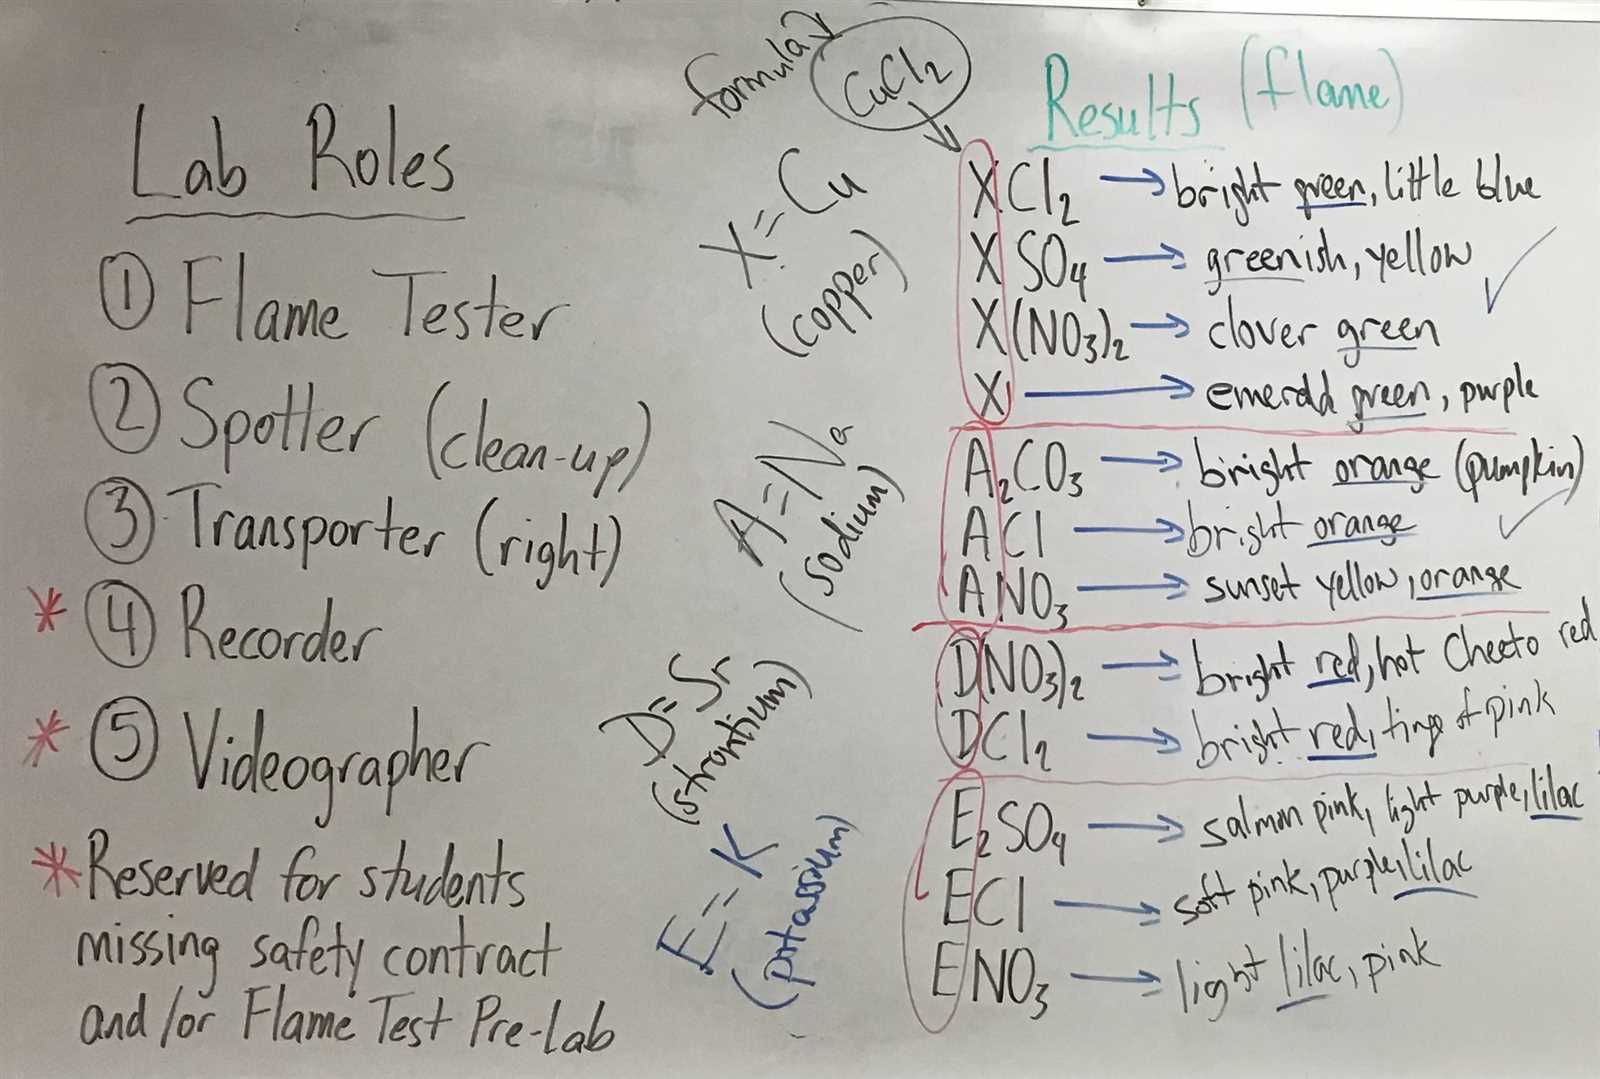 Lab Roles
① Flame Tester
② Spotter (clean-up)
③ Transporter (right)
* ④ Recorder
* ⑤ Videographer
* Reserved for students
missing safety contract
and/or Flame Test Pre-Lab
formula
CuCl2
X = Cu
(copper)
A = Na
(sodium)
D = Sr
(strontium)
E = K
(potassium)
Results (flame)
XCl2 → bright green, little blue
XSO4 → greenish, yellow
X(NO3)2 → clover green
X → emerald green, purple
A2CO3 → bright orange (pumpkin)
ACl → bright orange
ANO3 → sunset yellow, orange
D(NO3)2 → bright red, hot Cheeto red
DCl2 → bright red, tinge of pink
E2SO4 → salmon pink, light purple, lilac
ECl → soft pink, purple, lilac
ENO3 → light lilac, pink